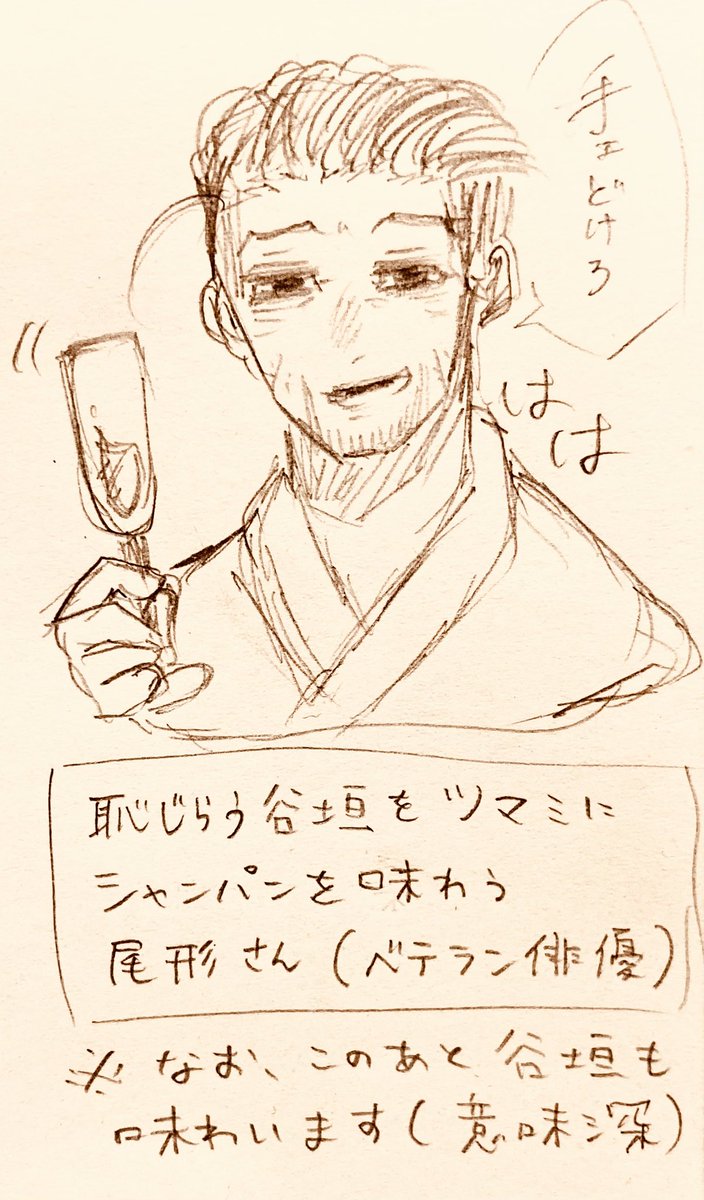 手ェどけろ
はは
恥じらう谷垣をツマミに
シャンパンを味わう
尾形さん(ベテラン俳優)
※なお、このあと谷垣も
味わいます(意味深)